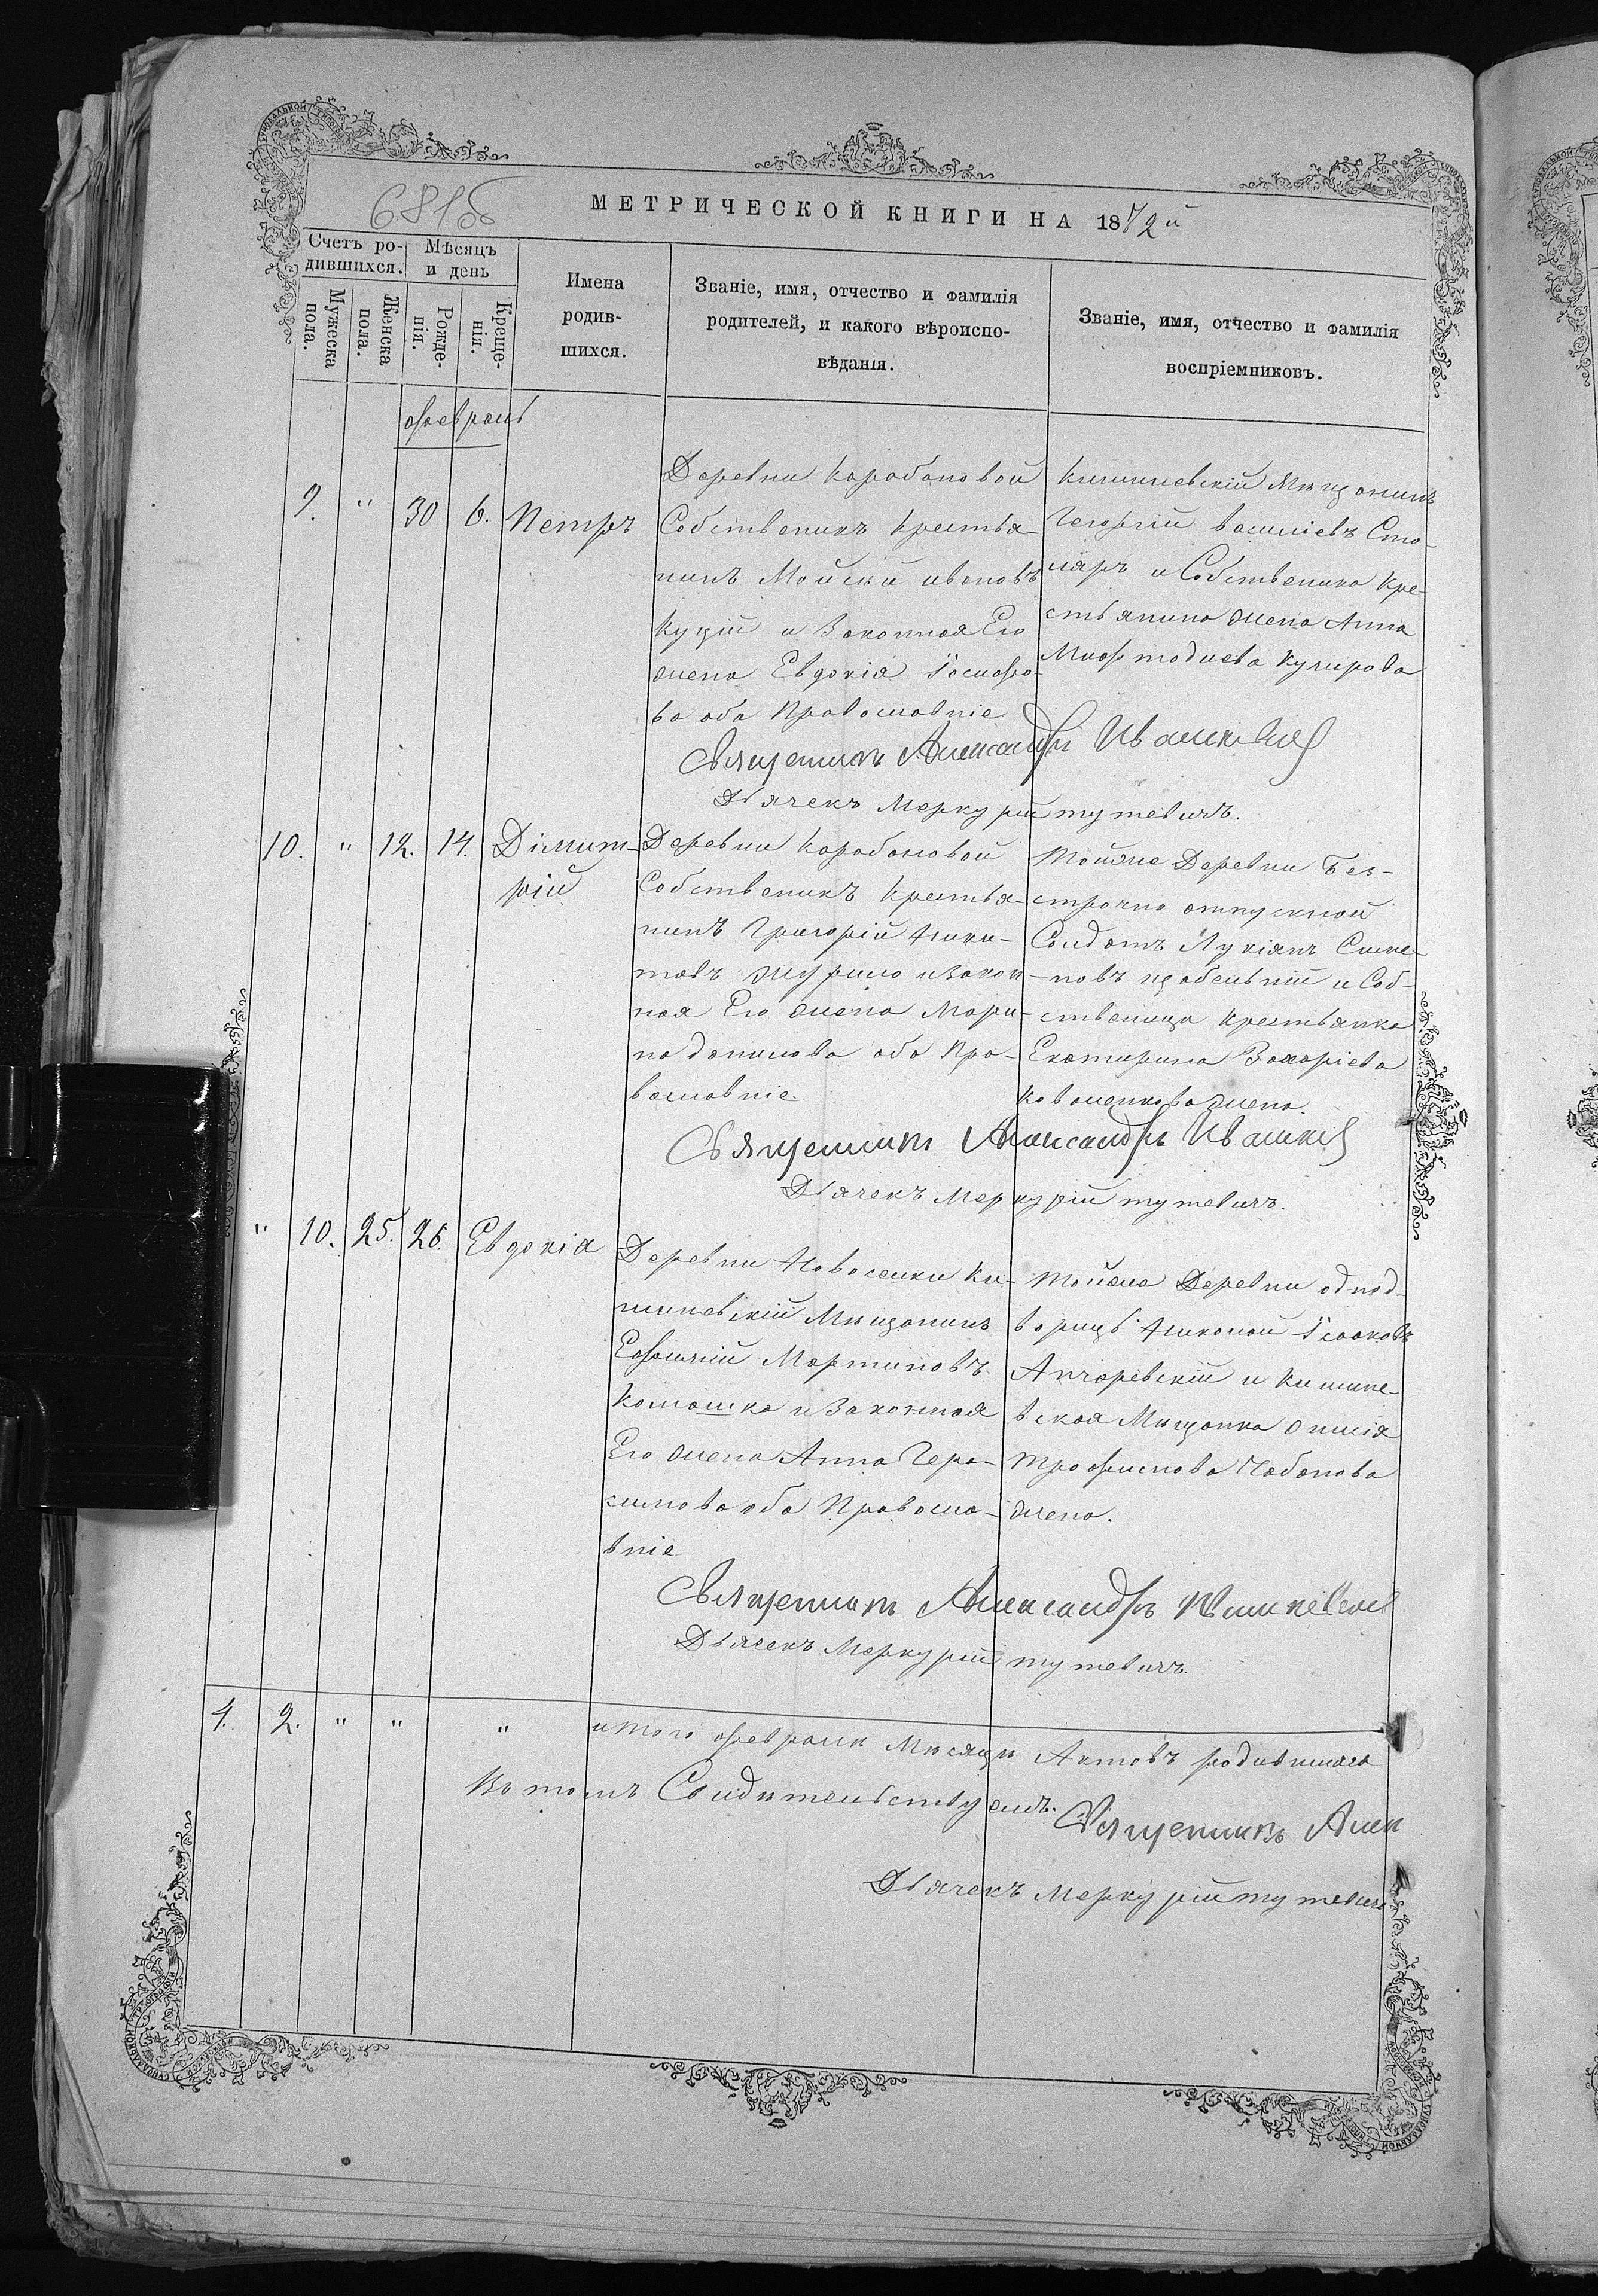 681б
МЕТРИЧЕСКОЙ КНИГИ НА 1872й
Счетъ ро-
дившихся.
Мѣсяцъ
и день
Мужеска
пола.
Женска
пола.
Рожде-
нія.
Креще-
нія.
Имена
родив-
шихся.
Званіе, имя, отчество и фамилія
родителей, и какого вѣроиспо-
вѣданія.
Званіе, имя, отчество и фамилія
воспріемниковъ.
февраль
9. " 30 6. Петръ
Деревни Карабановой
Собственикъ Крестья-
нинъ Мойсій ивановъ
Куцій и Законная Его
жена Евдокія
ва оба Православніе
Кишиневскій Мищанинъ
Георгій василіевъ Сто-
ляръ и Собственика Кре-
стьянина жена Анна
Кучирова
Священникъ Александръ
Дьячекъ Меркурій тутевичъ.
10. " 12. 14. Димит-
рій
Деревни Карабановой
Собственикъ Крестья-
нинъ Григорій Ники-
товъ журило и Закон-
ная Его жена Мари-
на данилова оба Пра-
вославніе
Тойже Деревни Без-
строчно отпускной
Солдатъ Лукіянъ Симе-
новъ и Соб-
ственица Крестьянка
Екатирина Захаріева
Коваленкова жена.
Священникъ Александръ
Дьячекъ Меркурій тутевичъ.
" 10. 25. 26. Евдокія
Деревни Новоселки Ки-
шиневскій Мищанинъ
Мартиновъ
Комашка и Законная
Его жена Анна Гера-
симова оба Правосла-
вніе
Тойже Деревни однод-
ворицъ Николай Ісааковъ
и Кишине-
вская Мищанка
Трофимова Чабанова
жена.
Священникъ Александръ
Дьячекъ Меркурій тутевичъ.
4. 2. " " " итого февраля Мисяця Актовъ родившихся
Въ томъ Свидительствуемъ.
Священникъ Алек
Дьячекъ Меркурій тутевичъ